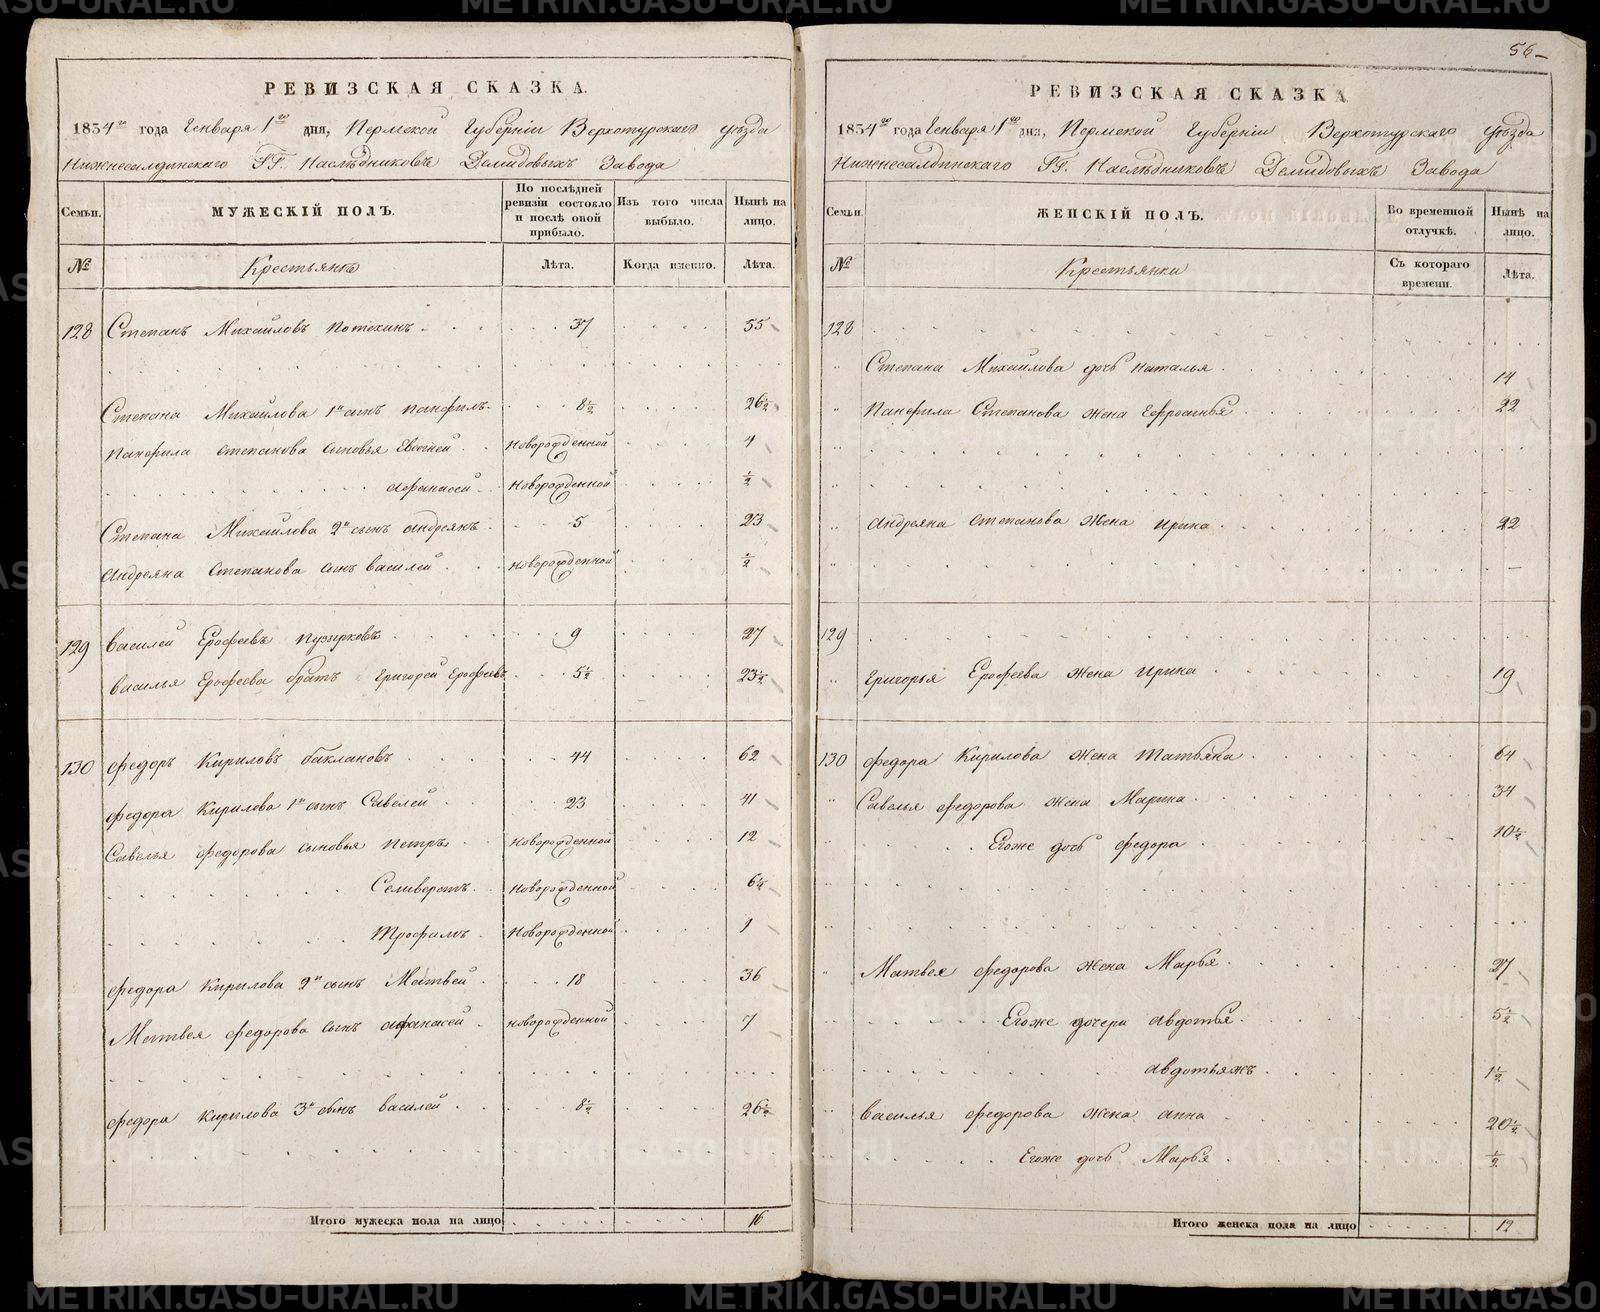 РЕВИЗСКАЯ СКАЗКА.
1834го года Генваря 1го дня, Пермской Губерніи Верхотурскаго уѣзда
Нижнесалдинскаго ГГ. Наслѣдниковъ Демидовыхъ Завода
Семьи. МУЖЕСКІЙ ПОЛЪ. По послѣдней ревизіи состояло и послѣ оной прибыло. Изъ того числа выбыло. Нынѣ на лицо.
№ Крестьяне Лѣта. Когда именно. Лѣта.
128 Степанъ Михайловъ Потехинъ 37 55
Степана Михайлова 1й сынъ Панфилъ 8½ 26½
Панфила Степанова сыновья Евсегней Новорожденной 4
Афанасей Новорожденной ½
Степана Михайлова 2й сынъ Андреянъ 5 23
Андреяна Степанова сынъ Василей Новорожденной ½
129 Василей Ерофеевъ Пузырковъ 9 27
Василья Ерофеева братъ Григорей Ерофеевъ 5½ 23½
130 Федоръ Кириловъ Баклановъ 44 62
Федора Кирилова 1й сынъ Савелей 23 41
Савелья Федорова сыновья Петръ Новорожденной 12
Селиверстъ Новорожденной 6¼
Трофимъ Новорожденной 1
Федора Кирилова 2й сынъ Матвей 18 36
Матвея Федорова сынъ Афанасей Новорожденной 7
Федора Кирилова 3й сынъ Василей 8½ 26½
Итого мужеска пола на лицо 16
56
РЕВИЗСКАЯ СКАЗКА
1834го года Генваря 1го дня, Пермской Губерніи Верхотурскаго уѣзда
Нижнесалдинскаго ГГ. Наслѣдниковъ Демидовыхъ Завода
Семьи. ЖЕНСКІЙ ПОЛЪ. Во временной отлучкѣ. Нынѣ на лицо.
№ Крестьянки Съ котораго времени. Лѣта.
128
Степана Михайлова дочь Наталья 14
Панфила Степанова жена Ефросинья 22
Андреяна Степанова жена Ирина 22
129
Григорья Ерофеева жена Ирина 19
130 Федора Кирилова жена Татьяна 64
Савелья Федорова жена Марина 34
Егоже дочь Федора 10½
Матвея Федорова жена Марья 27
Егоже дочери Авдотья 5½
Авдотьяжъ 1½
Василья Федорова жена Анна 20½
Егоже дочь Марья ½
Итого женска пола на лицо 12
METRIKI.GASO-URAL.RU